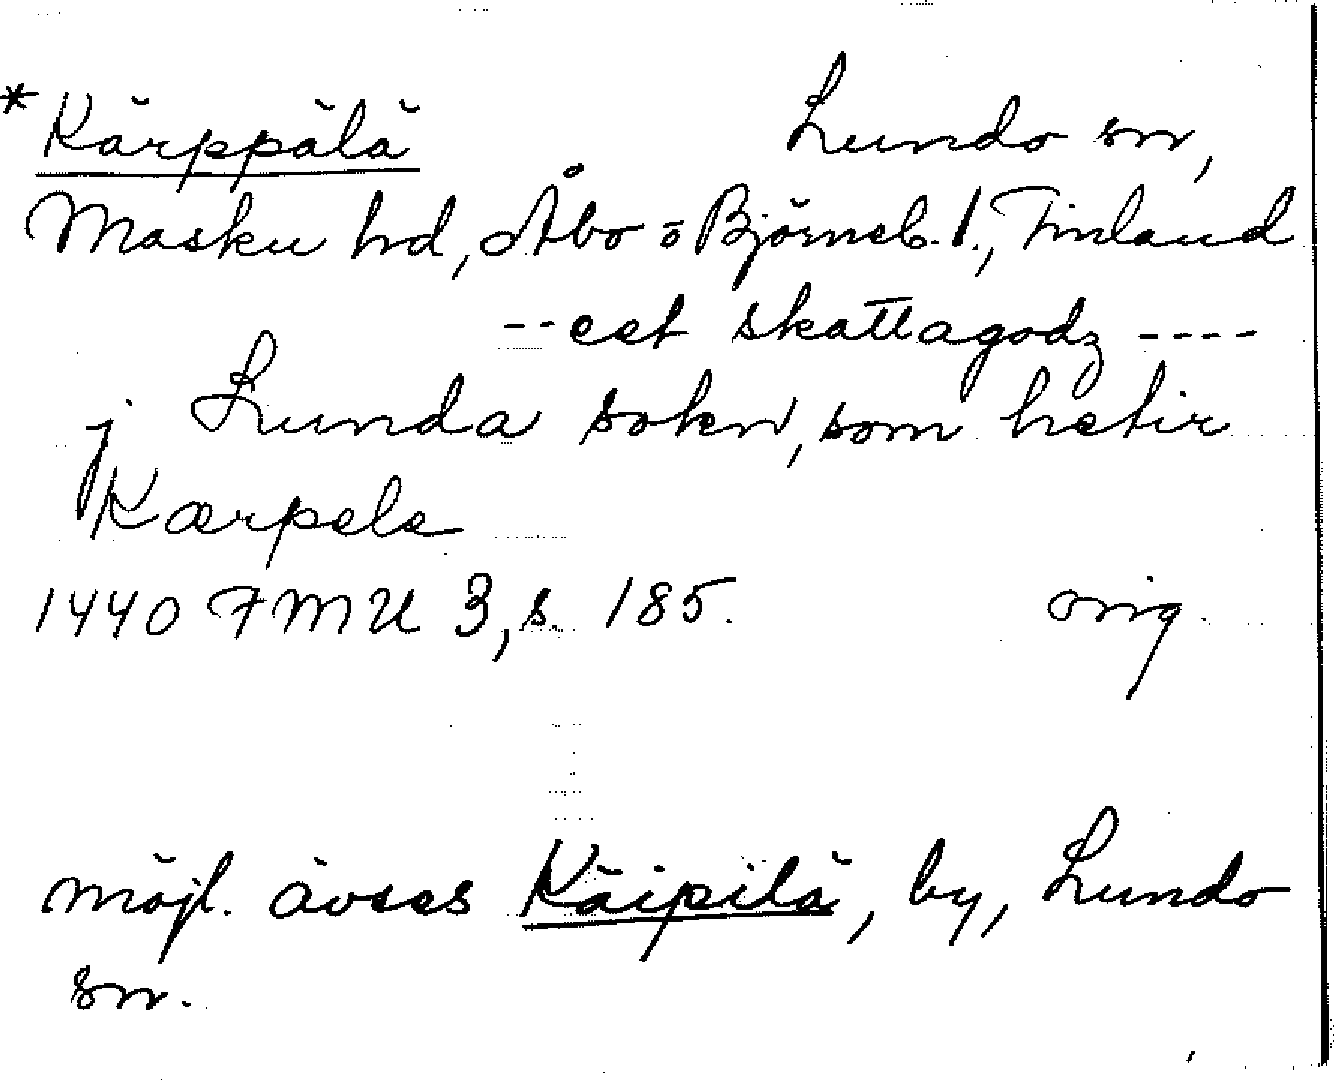 *Kärppälä Lundo sn,
Masku hd, Åbo o Björneb. l., Finland
-- eet skattagodz ----
j Lunda sokn, som hetir
Kærpele
1440 FMU 3, s. 185. orig.
möjl. avses Käipilä, by, Lundo
sn.